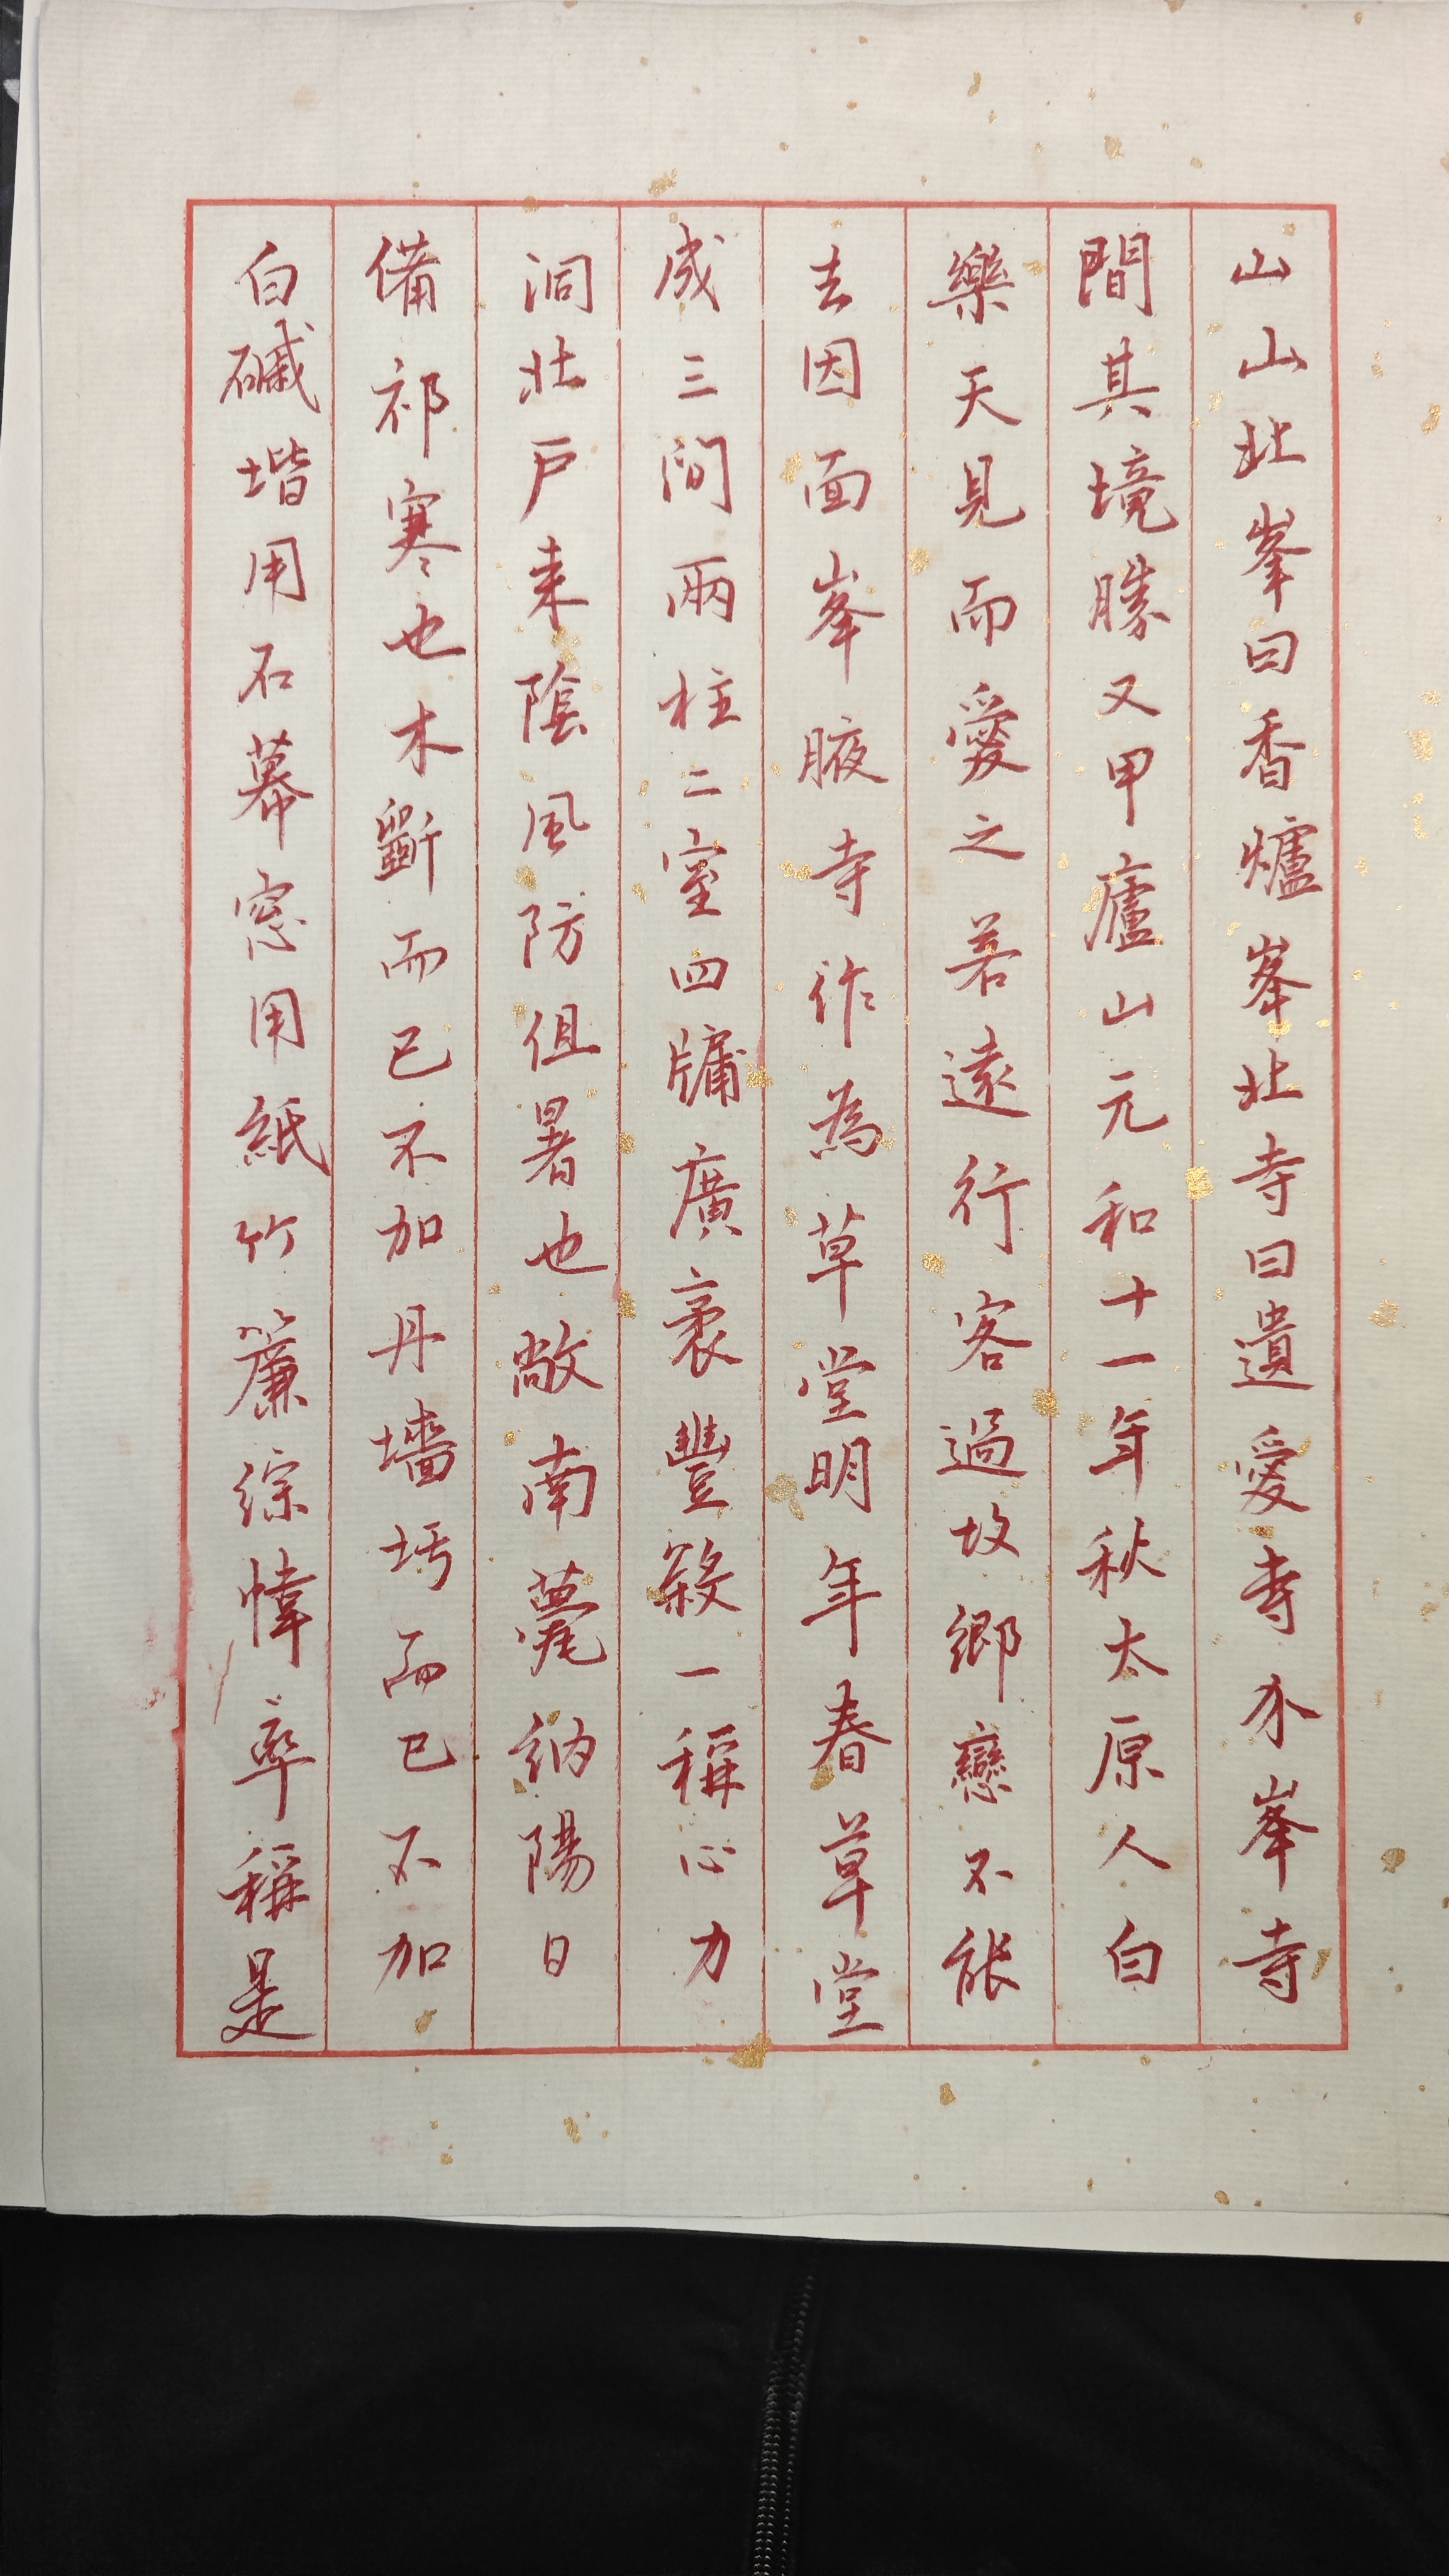 山山北峯曰香爐峯北寺曰遺愛寺介峯寺
間其境勝又甲廬山元和十一年秋太原人白
樂天見而愛之若遠行客過故鄉戀不能
去因面峯腋寺作為草堂明年春草堂
成三間兩柱二室四牖廣袤豐殺一稱心力
洞壮户来陰風防徂暑也敞南甍納陽日
備祁寒也木斷而已不加丹墻圬而已不加
白磩堦用石冪窓用紙竹簾綜幃率稱是